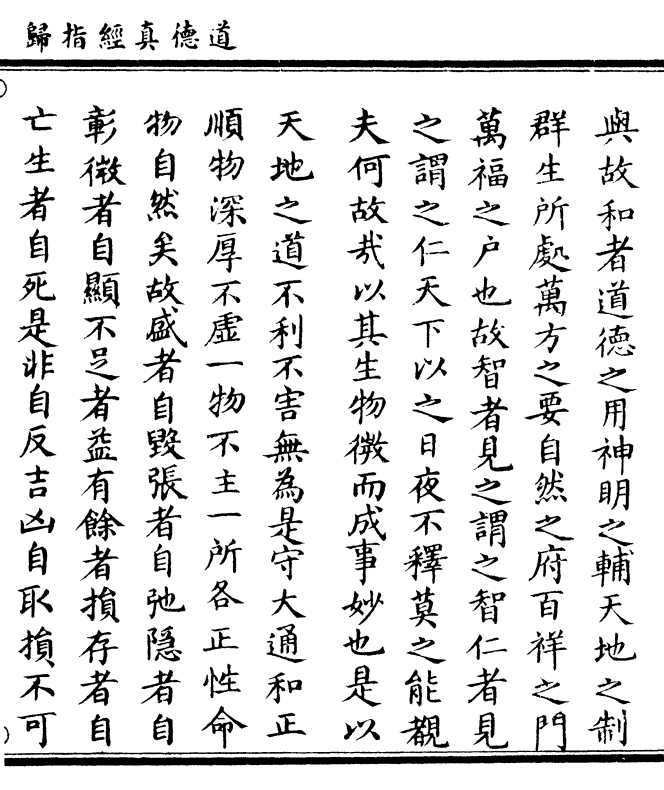 道德真經指歸
與故和者道德之用神明之輔天地之制
群生所處萬方之要自然之府百祥之門
萬福之户也故智者見之謂之智仁者見
之謂之仁天下以之日夜不釋莫之能覩
夫何故哉以其生物微而成事妙也是以
天地之道不利不害無為是守大通和正
順物深厚不虛一物不主一所各正性命
物自然矣故盛者自毀張者自弛隱者自
彰微者自顯不足者益有餘者損存者自
亡生者自死是非自反吉凶自取損不可